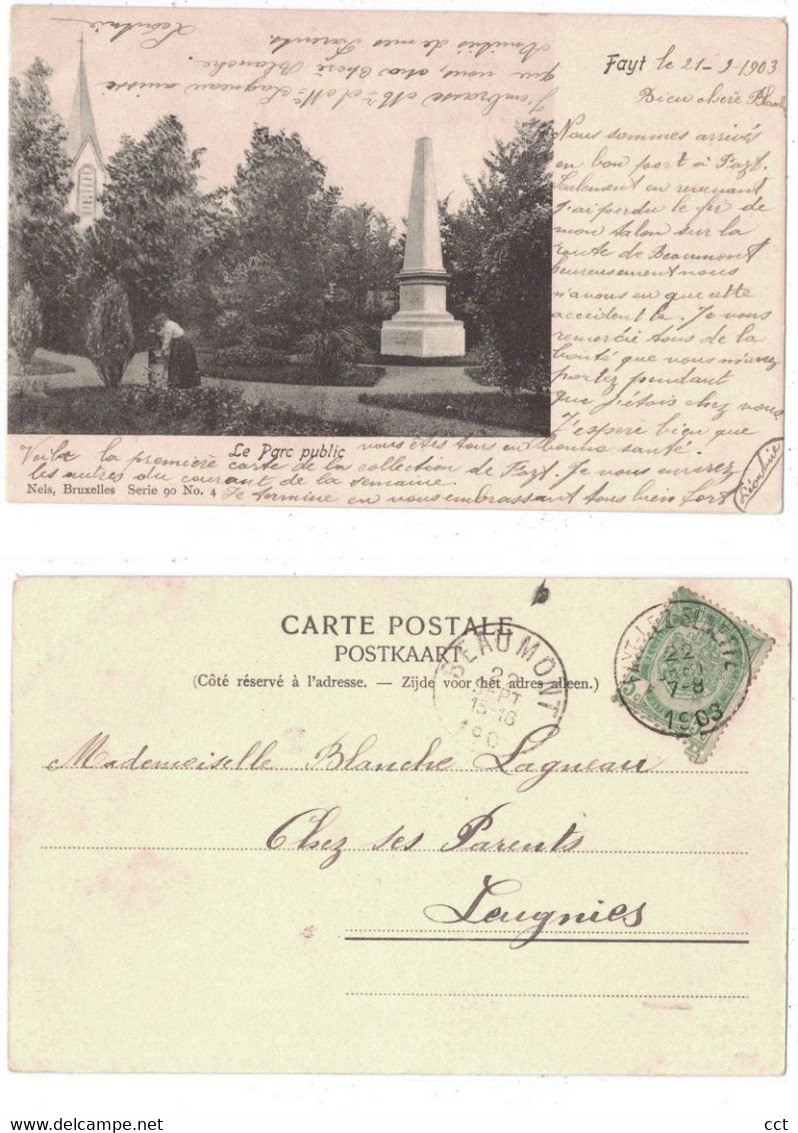 Fayt le 21-9-1903
Bien chère Blanche
Nous sommes arrivés
en bon port à Fayt.
Seulement en revenant
j'ai perdu le fer de
mon talon sur la
route de Beaumont
heureusement nous
n'avons eu que cette
accident là. Je vous
remercie tous de la
bonté que vous m'avez
portez pendant
que j'étais chez vous
J'espère bien que
vous êtes tous en bonne santé.
Le Parc public
Voilà la première carte de la collection de Fayt. Je vous enverrez
les autres du courant de la semaine.
Je termine en vous embrassant tous bien fort
Léontine
Nels, Bruxelles Serie 90 No. 4
J'embrasse Mr et Mme Lagneau ainsi
que vous, ma chère Blanche.
Amitiés de mes Parents
Léontine
CARTE POSTALE
POSTKAART
(Côté réservé à l'adresse. — Zijde voor het adres alleen.)
BEAUMONT
22
SEPT
15-16
190
FAYT-LEZ-SENEFFE
22
SEPT
7-8
1903
Mademoiselle Blanche Lagneau
Chez ses Parents
Leugnies
www.delcampe.net
cct